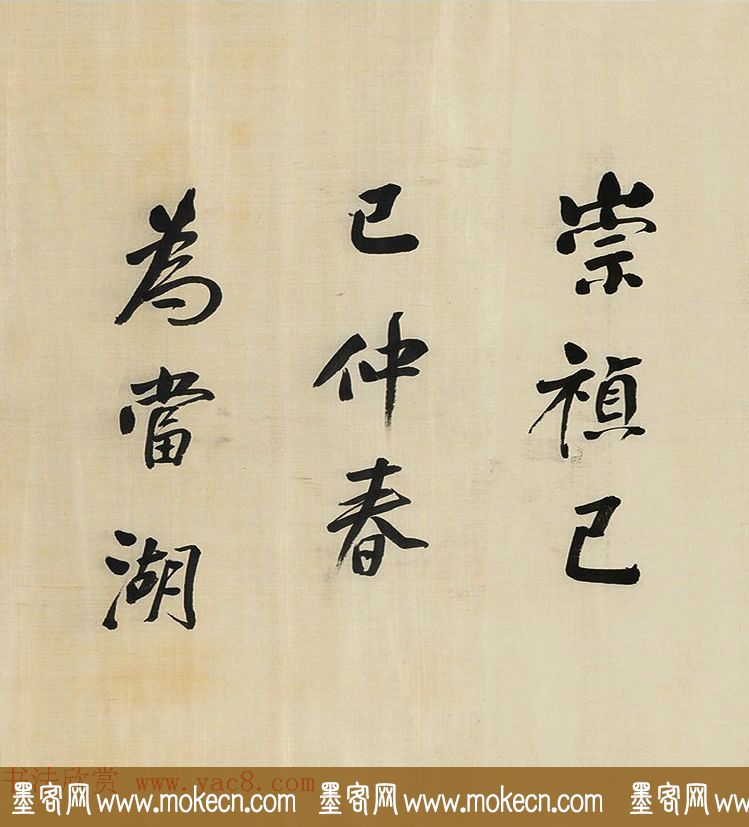 崇禎己
巳仲春
為當湖
书法欣赏 www.yac8.com
墨客网www.mokecn.com 墨客网www.mokecn.com 墨客网w